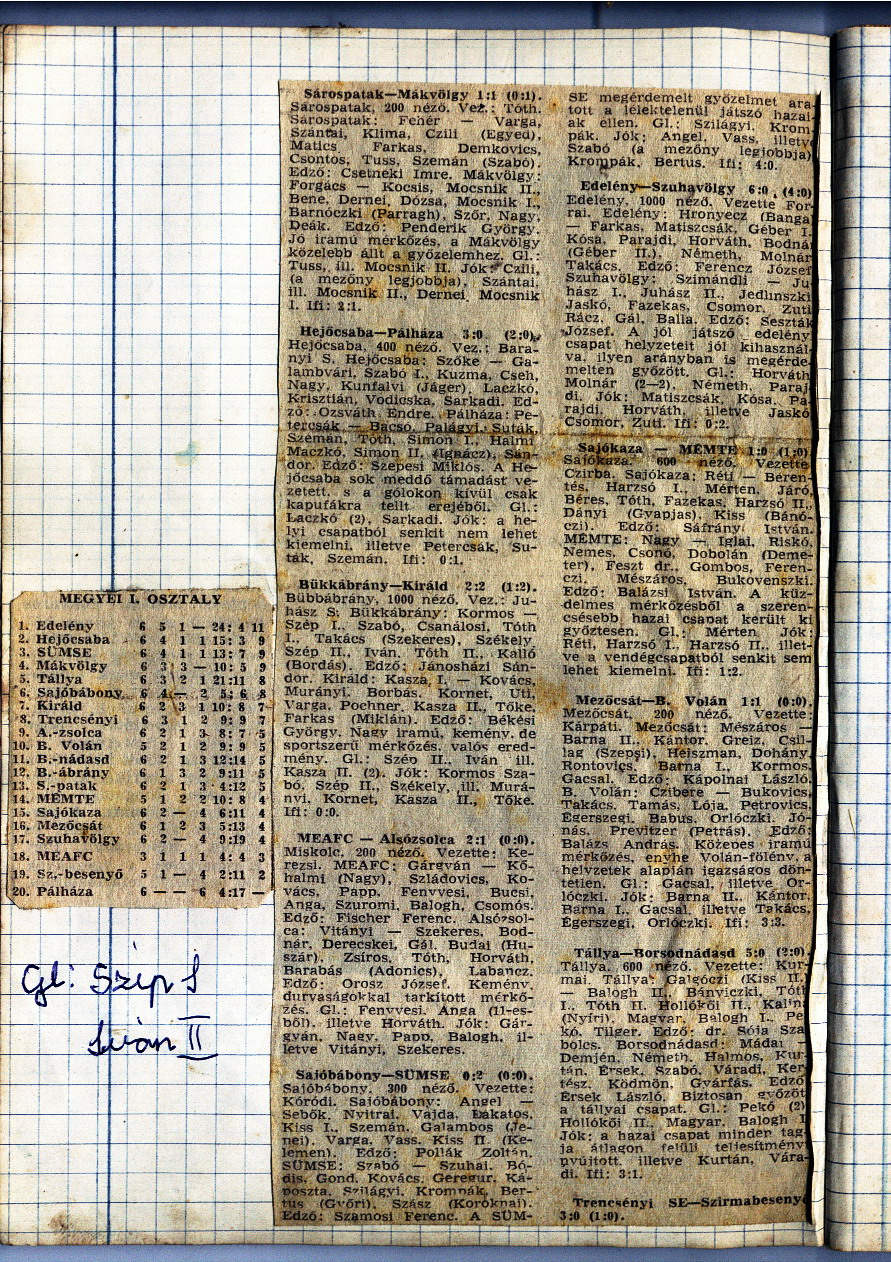 MEGYEI I. OSZTÁLY
1. Edelény 6 5 1 — 24: 4 11
2. Hejőcsaba 6 4 1 1 15: 3 9
3. SÜMSE 6 4 1 1 13: 7 9
4. Mákvölgy 6 3 3 — 10: 5 9
5. Tállya 6 3 2 1 21:11 8
6. Sajóbábony 6 4 — 2 5: 6 8
7. Királd 6 2 3 1 10: 8 7
8. Trencsényi 6 3 1 2 9: 9 7
9. A.-zsolca 6 2 1 3 8: 7 5
10. B. Volán 5 2 1 2 9: 9 5
11. B.-nádasd 6 2 1 3 12:14 5
12. B.-ábrány 6 1 3 2 9:11 5
13. S.-patak 6 2 1 3 4:12 5
14. MEMTE 5 1 2 2 10: 8 4
15. Sajókaza 6 2 — 4 6:11 4
16. Mezőcsát 6 1 2 3 5:13 4
17. Szuhavölgy 6 2 — 4 9:19 4
18. MEAFC 3 1 1 1 4: 4 3
19. Sz.-besenyő 5 1 — 4 2:11 2
20. Pálháza 6 — — 6 4:17 —
Gl: Szép I
Iván II
Sárospatak—Mákvölgy 1:1 (0:1).
Sárospatak, 200 néző. Vez.: Tóth.
Sárospatak: Fehér — Varga,
Szántai, Klima, Czili (Egyed),
Matics, Farkas, Demkovics,
Csontos, Tuss, Szemán (Szabó).
Edző: Csetneki Imre. Mákvölgy:
Forgács — Kocsis, Mocsnik II.,
Bene, Dernei, Dózsa, Mocsnik I.,
Barnóczki (Parragh), Szőr, Nagy,
Deák. Edző: Penderik György.
Jó iramú mérkőzés, a Mákvölgy
közelebb állt a győzelemhez. Gl.:
Tuss, ill. Mocsnik II. Jók: Czili,
(a mezőny legjobbja), Szántai,
ill. Mocsnik II., Dernei, Mocsnik
I. Ifi: 2:1.
Hejőcsaba—Pálháza 3:0 (2:0).
Hejőcsaba, 400 néző. Vez.: Bara-
nyi S. Hejőcsaba: Szőke — Ga-
lambvári, Szabó I., Kuzma, Cseh,
Nagy, Kunfalvi (Jáger), Laczkó,
Krisztián, Vodicska, Sarkadi. Ed-
ző: Ozsváth Endre. Pálháza: Pe-
tercsák — Bacsó, Palágyi, Suták,
Szemán, Tóth, Simon I., Halmi
Maczkó, Simon II. (Ignácz), Sán-
dor. Edző: Szepesi Miklós. A He-
jőcsaba sok meddő támadást ve-
zetett, s a gólokon kívül csak
kapufákra tellt erejéből. Gl.:
Laczkó (2), Sarkadi. Jók: a he-
lyi csapatból senkit nem lehet
kiemelni, illetve Petercsák, Su-
ták, Szemán. Ifi: 0:1.
Bükkábrány—Királd 2:2 (1:2).
Bübbábrány, 1000 néző. Vez.: Ju-
hász S. Bükkábrány: Kormos —
Szép I., Szabó, Csanálosi, Tóth
I., Takács (Szekeres), Székely
Szép II., Iván. Tóth II., Kalló
(Bordás). Edző: Jánosházi Sán-
dor. Királd: Kasza I. — Kovács,
Murányi. Borbás. Kornet, Uti,
Varga. Pochner. Kasza II., Tőke.
Farkas (Miklán). Edző: Békési
György. Nagy iramú, kemény, de
sportszerű mérkőzés, valós ered-
mény. Gl.: Szép II., Iván ill.
Kasza II. (2). Jók: Kormos Sza-
bó, Szép II., Székely, ill. Murá-
nyi, Kornet, Kasza II., Tőke.
Ifi: 0:0.
MEAFC — Alsózsolca 2:1 (0:0).
Miskolc, 200 néző. Vezette: Ke-
rezsi. MEAFC: Gárgyán — Kő-
halmi (Nagy), Szládovics, Ko-
vács, Papp, Fenyvesi, Bucsi,
Anga, Szuromi, Balogh, Csomós.
Edző: Fischer Ferenc. Alsózsol-
ca: Vitányi — Szekeres, Bod-
nár, Derecskei, Gál, Budai (Hu-
szár), Zsíros, Tóth, Horváth,
Barabás (Adonics), Labancz.
Edző: Orosz József. Kemény,
durvaságokkal tarkított mérkő-
zés. Gl.: Fenyvesi, Anga (11-es-
ből), illetve Horváth. Jók: Gár-
gyán, Nagy, Papp, Balogh, il-
letve Vitányi, Szekeres.
Sajóbábony—SÜMSE 0:2 (0:0).
Sajóbábony, 300 néző. Vezette:
Kóródi. Sajóbábony: Angel —
Sebők, Nyitrai, Vajda, Lakatos,
Kiss I., Szemán, Galambos (Je-
nei). Varga, Vass, Kiss II. (Ke-
lemen). Edző: Pollák Zoltán.
SÜMSE: Szabó — Szuhai, Bó-
dis, Gond, Kovács, Geregur, Ká-
poszta, Szilágyi, Krompák, Ber-
tus (Győri), Szász (Koröknai).
Edző: Szamosi Ferenc. A SÜM-
SE megérdemelt győzelmet ara-
tott a lélektelenül játszó hazai-
ak ellen. Gl.: Szilágyi, Krom-
pák. Jók: Angel, Vass, illetve
Szabó (a mezőny legjobbja)
Krompák, Bertus. Ifi: 4:0.
Edelény—Szuhavölgy 6:0 (4:0)
Edelény, 1000 néző. Vezette For-
rai. Edelény: Hronyecz (Banga
— Farkas, Matiszcsák, Géber I.
Kósa, Parajdi, Horváth, Bodná
(Géber II.), Németh, Molnár
Takács, Edző: Ferencz József
Szuhavölgy: Szimándli — Ju-
hász I., Juhász II., Jedlinszki
Jaskó, Fazekas, Csomor, Zuti
Rácz, Gál, Balla. Edző: Seszták
József. A jól játszó edelény
csapat helyzeteit jól kihasznál-
va, ilyen arányban is megérde-
melten győzött. Gl.: Horváth
Molnár (2—2), Németh, Paraj-
di. Jók: Matiszcsák, Kósa, Pa-
rajdi, Horváth, illetve Jaskó
Csomor, Zuti. Ifi: 0:2.
Sajókaza — MÉMTE 1:0 (1:0)
Sajókaza, 600 néző. Vezette
Czirba. Sajókaza: Réti — Beren-
tés, Harzsó I., Mérten, Járó,
Béres, Tóth, Fazekas, Harzsó II.,
Dányi (Gyapjas), Kiss (Bánó-
czi). Edző: Sáfrány István.
MÉMTE: Nagy — Iglai, Riskó,
Nemes, Csonó, Dobolán (Deme-
ter), Feszt dr., Gombos, Feren-
czi, Mészáros, Bukovenszki.
Edző: Balázsi István. A küz-
delmes mérkőzésből a szeren-
csésebb hazai csapat került ki
győztesen. Gl.: Mérten Jók:
Réti, Harzsó I., Harzsó II., illet-
ve a vendégcsapatból senkit sem
lehet kiemelni. Ifi: 1:2.
Mezőcsát—B. Volán 1:1 (0:0).
Mezőcsát, 200 néző. Vezette:
Kárpáti. Mezőcsát: Mészáros —
Barna II., Kántor, Greiz, Csil-
lag (Szepsi), Heiszman, Dohány,
Rontovics, Barna I., Kormos,
Gacsal. Edző: Kápolnai László.
B. Volán: Czibere — Bukovics,
Takács, Tamás, Lója, Petrovics,
Egerszegi, Babus, Orlóczki, Jó-
nás, Previtzer (Petrás). Edző:
Balázs András. Közepes iramú
mérkőzés, enyhe Volán-fölény, a
helyzetek alapján igazságos dön-
tetlen. Gl.: Gacsal, illetve Or-
lóczki. Jók: Barna II., Kántor,
Barna I., Gacsal, illetve Takács,
Egerszegi, Orlóczki. Ifi: 3:3.
Tállya—Borsodnádasd 5:0 (2:0).
Tállya, 600 néző. Vezette: Kur-
mai. Tállya: Galgóczi (Kiss II.)
— Balogh II., Bányiczki, Tóth
I., Tóth II. Hollókői II., Kalina
(Nyíri), Magyar, Balogh I., Pe-
kó, Tilger. Edző: dr. Sója Sza
bolcs. Borsodnádasd: Mádai
Demjén, Németh, Halmos, Kur-
tán, Érsek, Szabó, Váradi, Ker
tész, Ködmön, Gyárfás. Edző
Érsek László. Biztosan győzöt
a tállyai csapat. Gl.: Pekó (2)
Hollókői II., Magyar, Balogh I
Jók: a hazai csapat minden tag-
ja átlagon felüli teljesítmény
nyújtott, illetve Kurtán, Vára-
di. Ifi: 3:1.
Trencsényi SE—Szirmabeseny
3:0 (1:0).